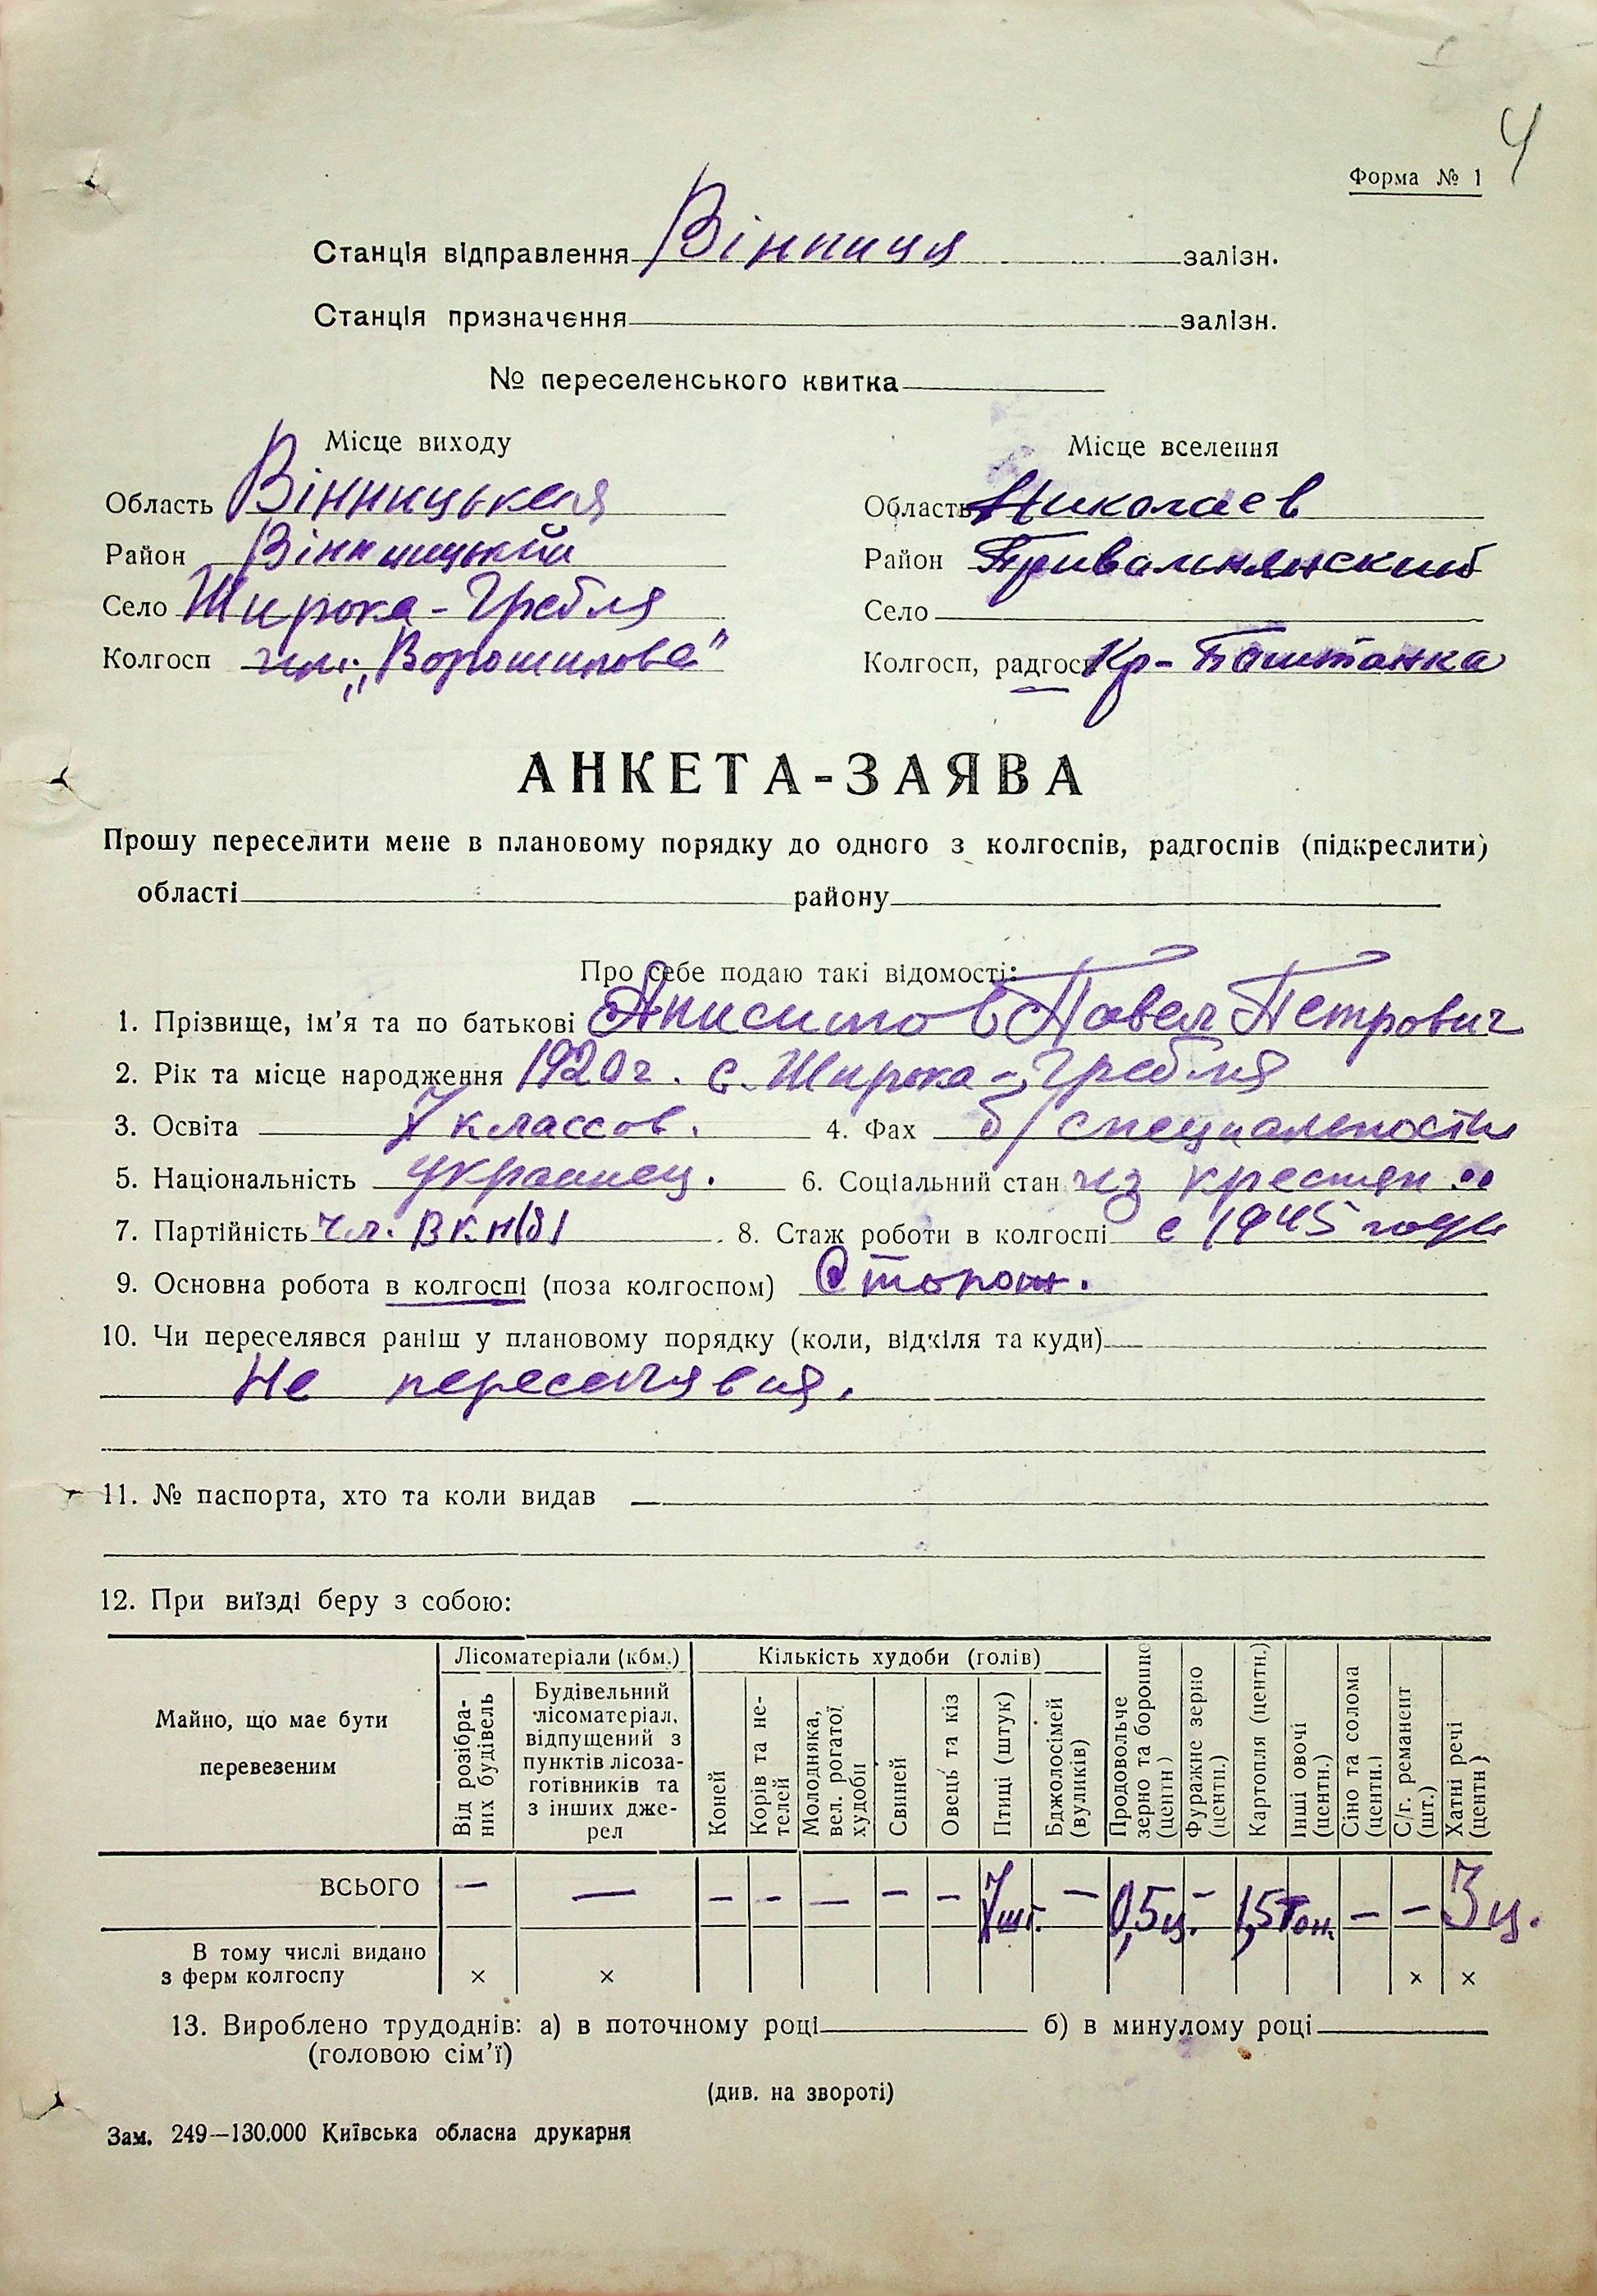 4
Форма № 1
Станція відправлення Вінниця залізн.
Станція призначення залізн.
№ переселенського квитка
Місце виходу
Область Вінницькая
Район Вінницький
Село Широка-Гребля
Колгосп им. „Ворошилова"
Місце вселення
Область Николаев
Район Привальнянский
Село
Колгосп, радгосп Кр-Баштанка
АНКЕТА-ЗАЯВА
Прошу переселити мене в плановому порядку до одного з колгоспів, радгоспів (підкреслити)
області району
Про себе подаю такі відомості:
1. Прізвище, ім'я та по батькові Анисимов Павел Петрович
2. Рік та місце народження 1920 г. с. Широка-Гребля
3. Освіта 7 классов. 4. Фах б/специальности
5. Національність украинец. 6. Соціальний стан из крестян
7. Партійність чл. ВКП(б) 8. Стаж роботи в колгоспі с 1945 года
9. Основна робота в колгоспі (поза колгоспом) Сторож.
10. Чи переселявся раніш у плановому порядку (коли, відкіля та куди)
Не переселявся.
11. № паспорта, хто та коли видав
12. При виїзді беру з собою:
Майно, що має бути перевезеним
Лісоматеріали (кбм.)
Від розібраних будівель
Будівельний лісоматеріал, відпущений з пунктів лісозаготівників та з інших джерел
Кількість худоби (голів)
Коней
Корів та нетелей
Молодняка, вел. рогатої худоби
Свиней
Овець та кіз
Птиці (штук)
Бджолосімей (вуликів)
Продовольче зерно та борошно (центн)
Фуражне зерно (центн.)
Картопля (центн.)
Інші овочі (центн.)
Сіно та солома (центн.)
С/г. реманент (шт.)
Хатні речі (центн)
ВСЬОГО — — - - — - - 7 шт. — 0,5ц. - 1,5 тон. — — 3 ц.
В тому числі видано
з ферм колгоспу × × × ×
13. Вироблено трудоднів: а) в поточному році б) в минулому році
(головою сім'ї)
(див. на звороті)
Зам. 249—130.000 Київська обласна друкарня